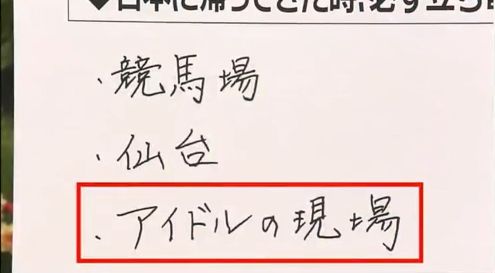 ◆日本に帰ってきた時、必ず立ち
・競馬場
・仙台
・アイドルの現場